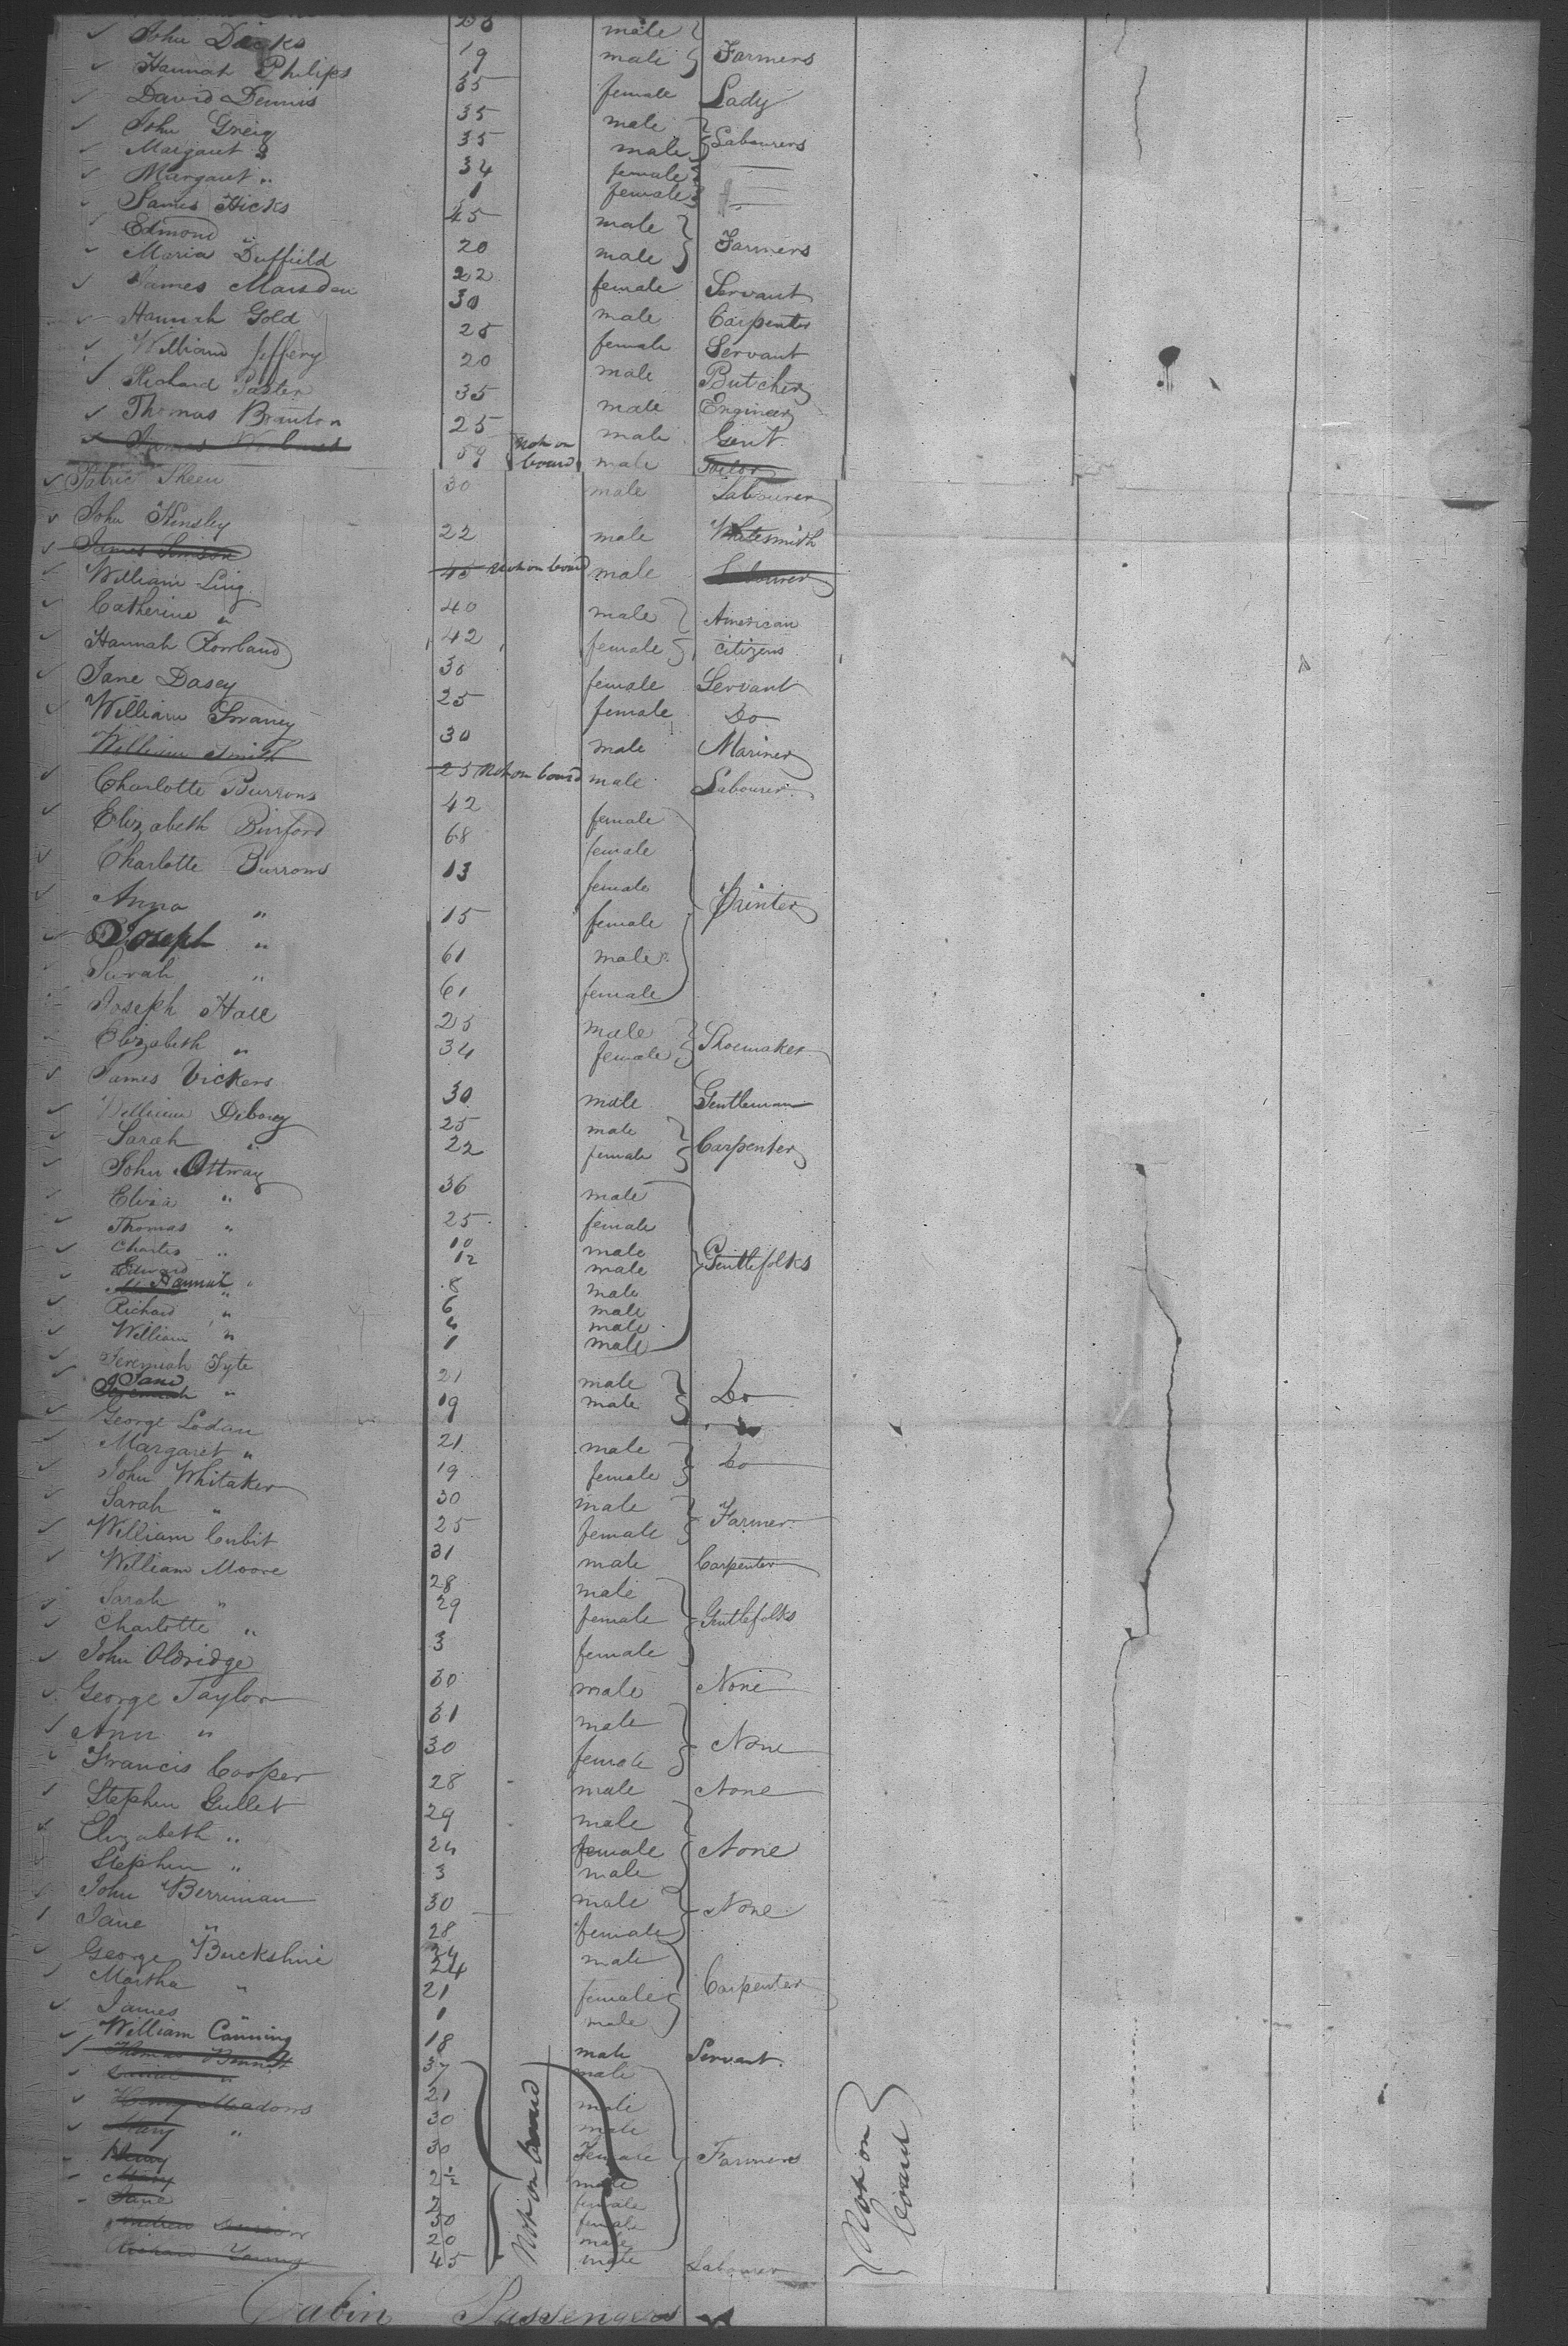 26 male
John Dacks 19 male Farmers
Hannah Philips 35 female Lady
David Dennis 35 male
John Greig 35 male Labourers
Margaret " 34 female
Margaret " 1 female
James Hicks 45 male
Edmond " 20 male Farmers
Maria Duffield 22 female Servant
James Marsden 30 male Carpenter
Hannah Gold 25 female Servant
William Jeffery 20 male Butcher
Richard 35 male Engineer
Thomas Branton 25 male Gent
James 59 Not on board male Tailor
Patric Sheen 30 male Labourer
John Hensley 22 male Whitesmith
James Simson 45 Not on board male Labourer
William Ling 40 male American
Catherine " 42 female citizens
Hannah Rowland 30 female Servant
Jane Dasey 25 female Do
William Swaney 30 male Mariner
William Smith 25 Not on board male Labourer
Charlotte Burrows 42 female
Elizabeth Binford 68 female
Charlotte Burrows 13 female Printer
Anna " 15 female
Joseph " 61 male
Sarah " 61 female
Joseph Hall 25 male Shoemaker
Elizabeth " 34 female
James Vickers 30 male Gentleman
William Deborey 25 male Carpenter
Sarah " 22 female
John Ottway 36 male
Eliza " 25 female
Thomas " 10 male
Charles " 12 male Gentlefolks
Edward " 8 male
Hannah " 6 male
Richard " 4 male
William " 1 male
Jeremiah Tyte 21 male Do
Jane " 19 male
George Lodan 21 male Do
Margaret " 19 female
John Whitaker 30 male Farmer
Sarah " 25 female
William Cubit 31 male Carpenter
William Moore 28 male
Sarah " 29 female Gentlefolks
Charlotte " 3 female
John Oldridge 30 male None
George Taylor 31 male None
Ann " 30 female
Francis Cooper 28 male None
Stephen Gullet 29 male
Elizabeth " 24 female None
Stephen " 3 male
John Berriman 30 male None
Jane " 28 female
George Buckshire 24 24 male
Martha " 21 female Carpenter
James " 1 male
William Canning 18 male Servant
Thomas Bennett 37 male
" 21 male
Henry Meadows 30 male
Mary " 30 Female Farmers
Henry 2½ male
Mary 2 female
Jane 30 female
Andrew 20 male
Richard Young 45 male Labourer
Not on board
Not on board
Cabin Passengers